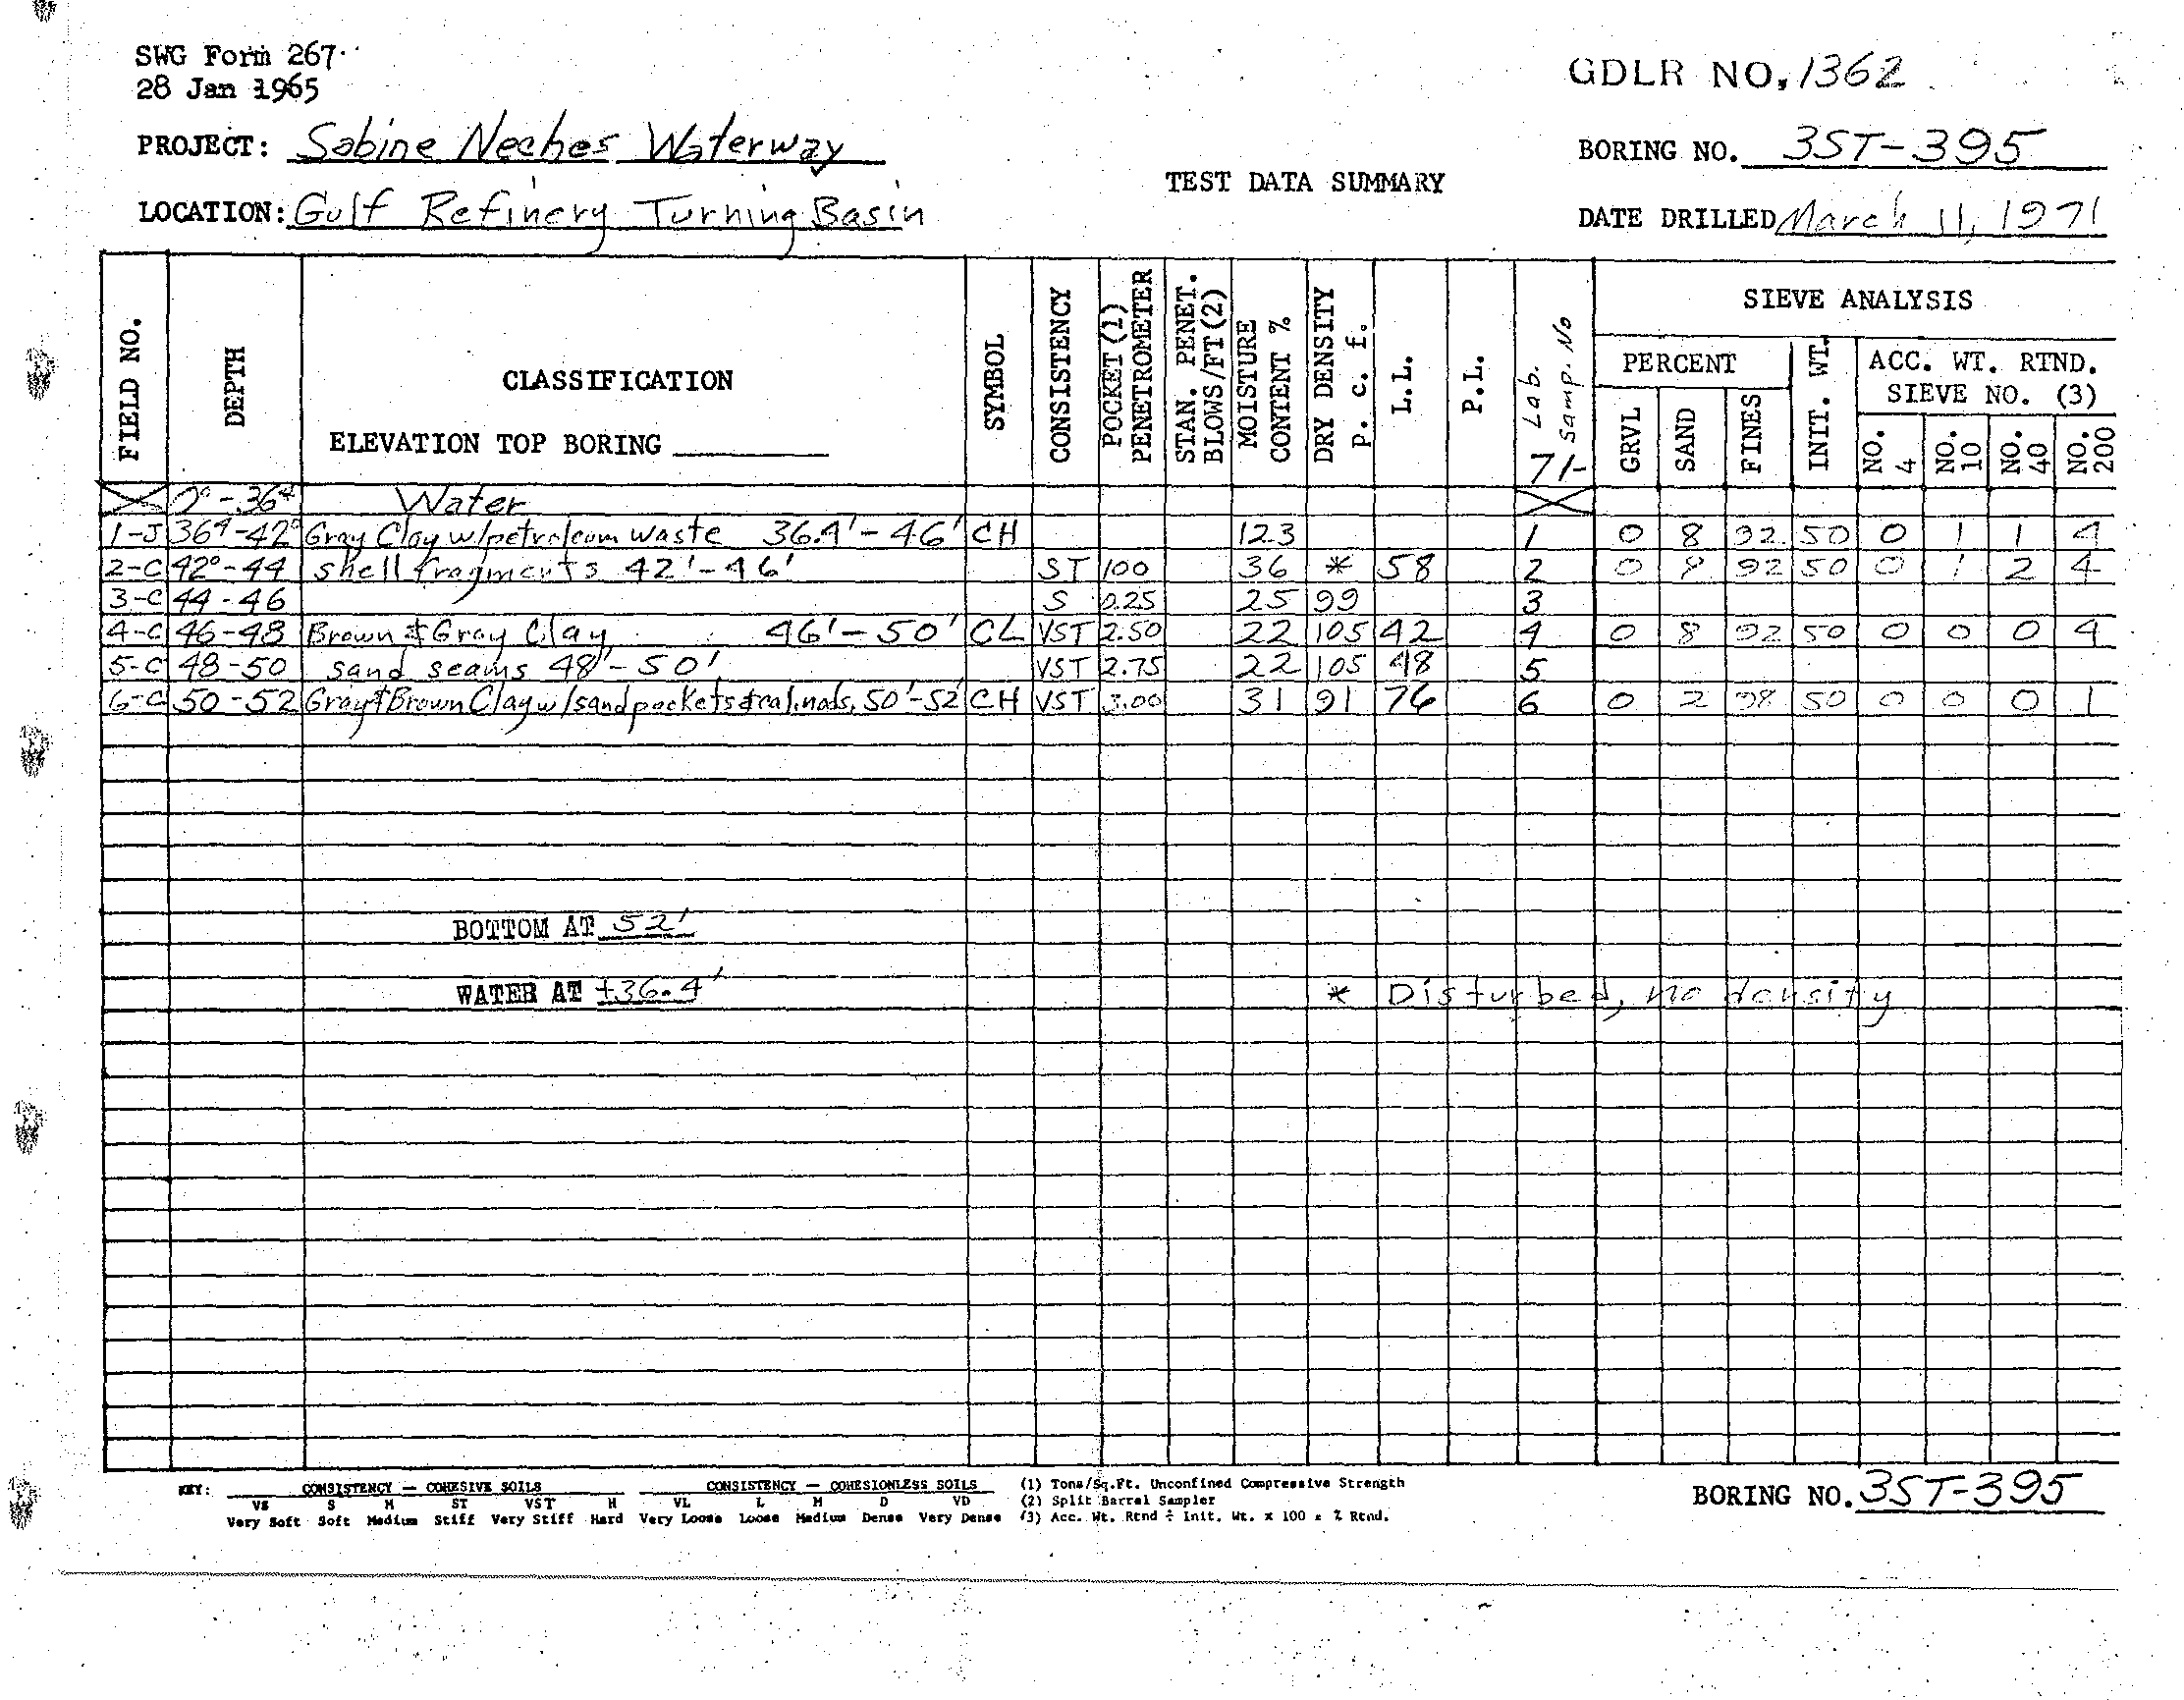 SWG Form 267
28 Jan 1965
GDLR NO. 1362
PROJECT: Sabine Neches Waterway
BORING NO. 3ST-395
TEST DATA SUMMARY
LOCATION: Gulf Refinery Turning Basin
DATE DRILLED March 11, 1971
FIELD NO.
DEPTH
CLASSIFICATION
ELEVATION TOP BORING
SYMBOL
CONSISTENCY
POCKET (1) PENETROMETER
STAN. PENET. BLOWS/FT (2)
MOISTURE CONTENT %
DRY DENSITY P. c. f.
L.L.
P.L.
Lab. Samp. No
71-
SIEVE ANALYSIS
PERCENT
GRVL
SAND
FINES
INIT. WT.
ACC. WT. RTND.
SIEVE NO. (3)
NO. 4
NO. 10
NO. 40
NO. 200
0° - 36⁴ Water
1-J 36⁴-42° Gray Clay w/petroleum waste 36.4'-46' CH 123 1 0 8 92 50 0 1 1 4
2-C 42°-44 shell fragments 42'-46' ST 100 36 * 58 2 0 8 92 50 0 1 2 4
3-C 44-46 S 0.25 25 99 3
4-C 46-48 Brown & Gray Clay 46'-50' CL VST 2.50 22 105 42 4 0 8 92 50 0 0 0 4
5-C 48-50 sand seams 48'-50' VST 2.75 22 105 48 5
6-C 50-52 Gray & Brown Clay w/sand pockets & cal. nods. 50'-52' CH VST 3.00 31 91 76 6 0 2 98 50 0 0 0 1
BOTTOM AT 52'
WATER AT +36.4'
* Disturbed, no density
KEY: CONSISTENCY — COHESIVE SOILS
VS S M ST VST H
Very Soft Soft Medium Stiff Very Stiff Hard
CONSISTENCY — COHESIONLESS SOILS
VL L M D VD
Very Loose Loose Medium Dense Very Dense
(1) Tons/Sq.Ft. Unconfined Compressive Strength
(2) Split Barrel Sampler
(3) Acc. Wt. Rtnd ÷ Init. Wt. x 100 = % Rtnd.
BORING NO. 3ST-395